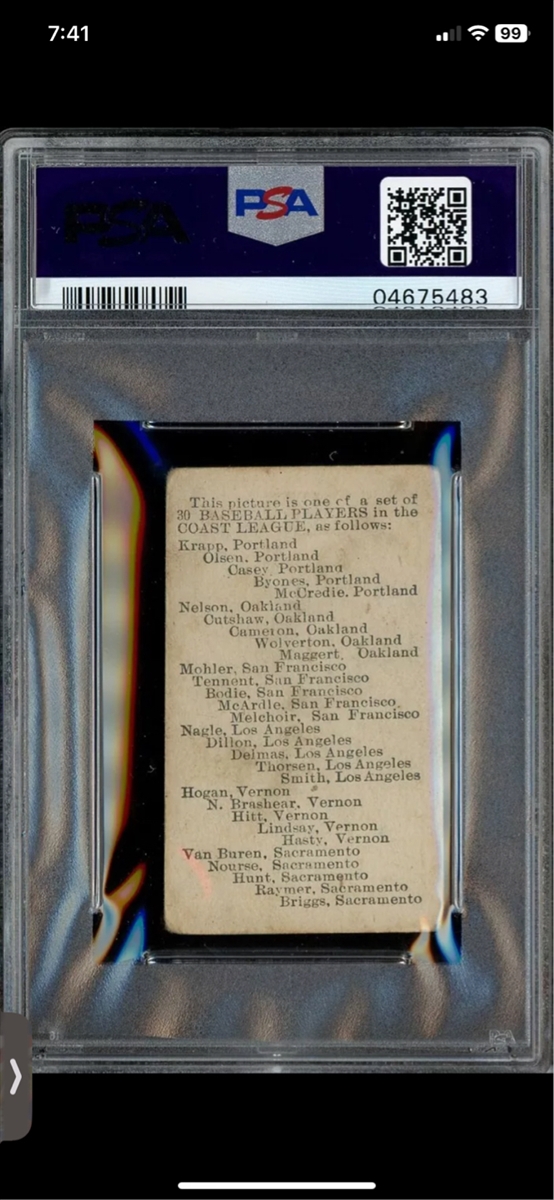 7:41
99
PSA
PSA
04675483
This picture is one of a set of
30 BASEBALL PLAYERS in the
COAST LEAGUE, as follows:
Krapp, Portland
Olsen, Portland
Casey Portland
Byones, Portland
McCredie. Portland
Nelson, Oakland
Cutshaw, Oakland
Cameron, Oakland
Wolverton, Oakland
Maggert, Oakland
Mohler, San Francisco
Tennent, San Francisco
Bodie, San Francisco
McArdle, San Francisco
Melchoir, San Francisco
Nagle, Los Angeles
Dillon, Los Angeles
Delmas, Los Angeles
Thorsen, Los Angeles
Smith, Los Angeles
Hogan, Vernon
N. Brashear, Vernon
Hitt, Vernon
Lindsay, Vernon
Hasty, Vernon
Van Buren, Sacramento
Nourse, Sacramento
Hunt, Sacramento
Raymer, Sacramento
Briggs, Sacramento